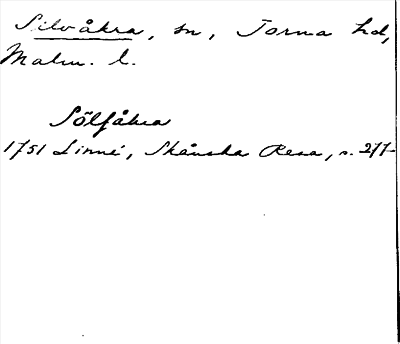 Silvåkra, sn, Torna hd,
Malm. l.
Sölfåkra
1751 Linné, Skånska Resa, s. 277